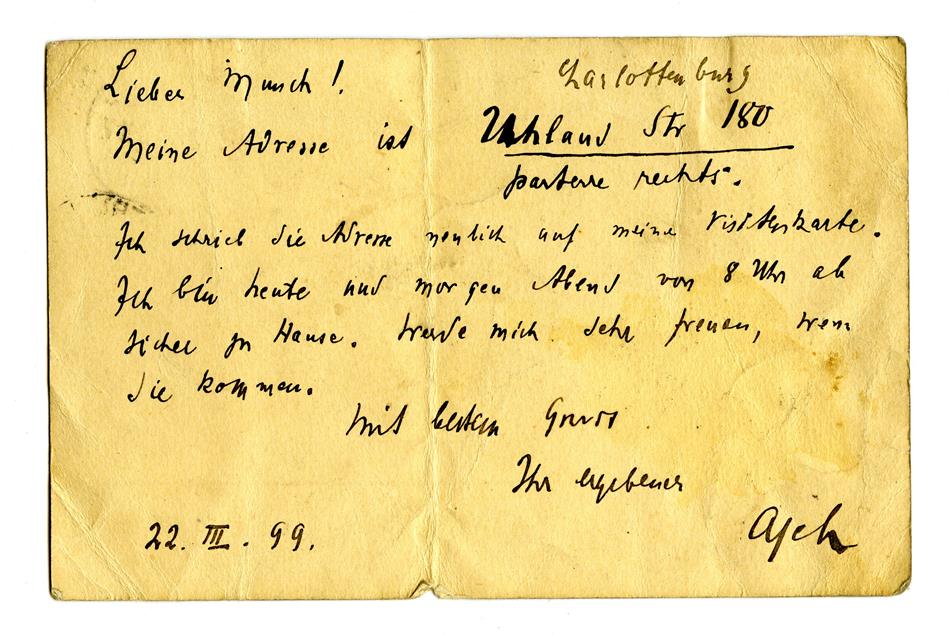 Lieber Munch!
Charlottenburg
Meine Adresse ist Uhland Str 180
parterre rechts.
Ich schrieb die Adresse neulich auf meine Visitenkarte.
Ich bin heute und morgen Abend von 8 Uhr ab
sicher zu Hause. Werde mich sehr freuen, wenn
Sie kommen.
Mit bestem Gruss
Ihr ergebener
Asch
22. III. 99.